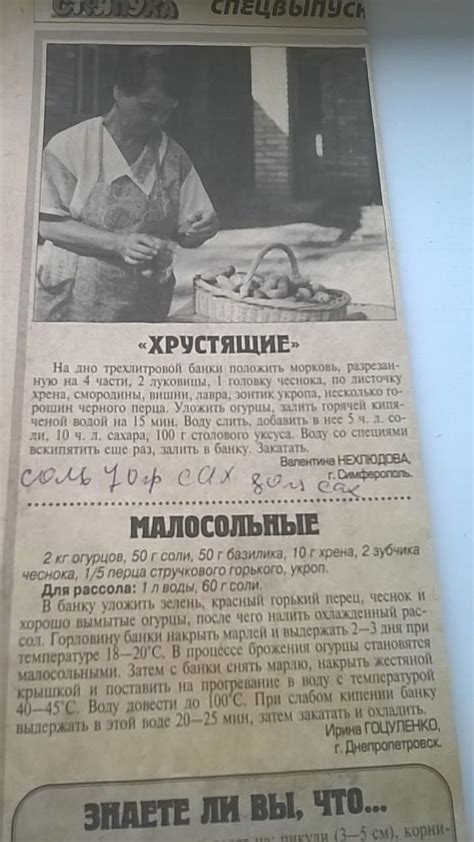 СТРЯПУХА СПЕЦВЫПУСК
«ХРУСТЯЩИЕ»
На дно трехлитровой банки положить морковь, разрезан-
ную на 4 части, 2 луковицы, 1 головку чеснока, по листочку
хрена, смородины, вишни, лавра, зонтик укропа, несколько го-
рошин черного перца. Уложить огурцы, залить горячей кипя-
ченой водой на 15 мин. Воду слить, добавить в нее 5 ч. л. со-
ли, 10 ч. л. сахара, 100 г столового уксуса. Воду со специями
вскипятить еще раз, залить в банку. Закатать.
Валентина НЕХЛЮДОВА,
г. Симферополь.
соль 70гр сах
сах
МАЛОСОЛЬНЫЕ
2 кг огурцов, 50 г соли, 50 г базилика, 10 г хрена, 2 зубчика
чеснока, 1/5 перца стручкового горького, укроп.
Для рассола: 1 л воды, 60 г соли.
В банку уложить зелень, красный горький перец, чеснок и
хорошо вымытые огурцы, после чего налить охлажденный рас-
сол. Горловину банки накрыть марлей и выдержать 2—3 дня при
температуре 18—20°С. В процессе брожения огурцы становятся
малосольными. Затем с банки снять марлю, накрыть жестяной
крышкой и поставить на прогревание в воду с температурой
40—45°С. Воду довести до 100°С. При слабом кипении банку
выдержать в этой воде 20—25 мин, затем закатать и охладить.
Ирина ГОЦУЛЕНКО,
г. Днепропетровск.
ЗНАЕТЕ ЛИ ВЫ, ЧТО...
на: пикули (3—5 см), корни-